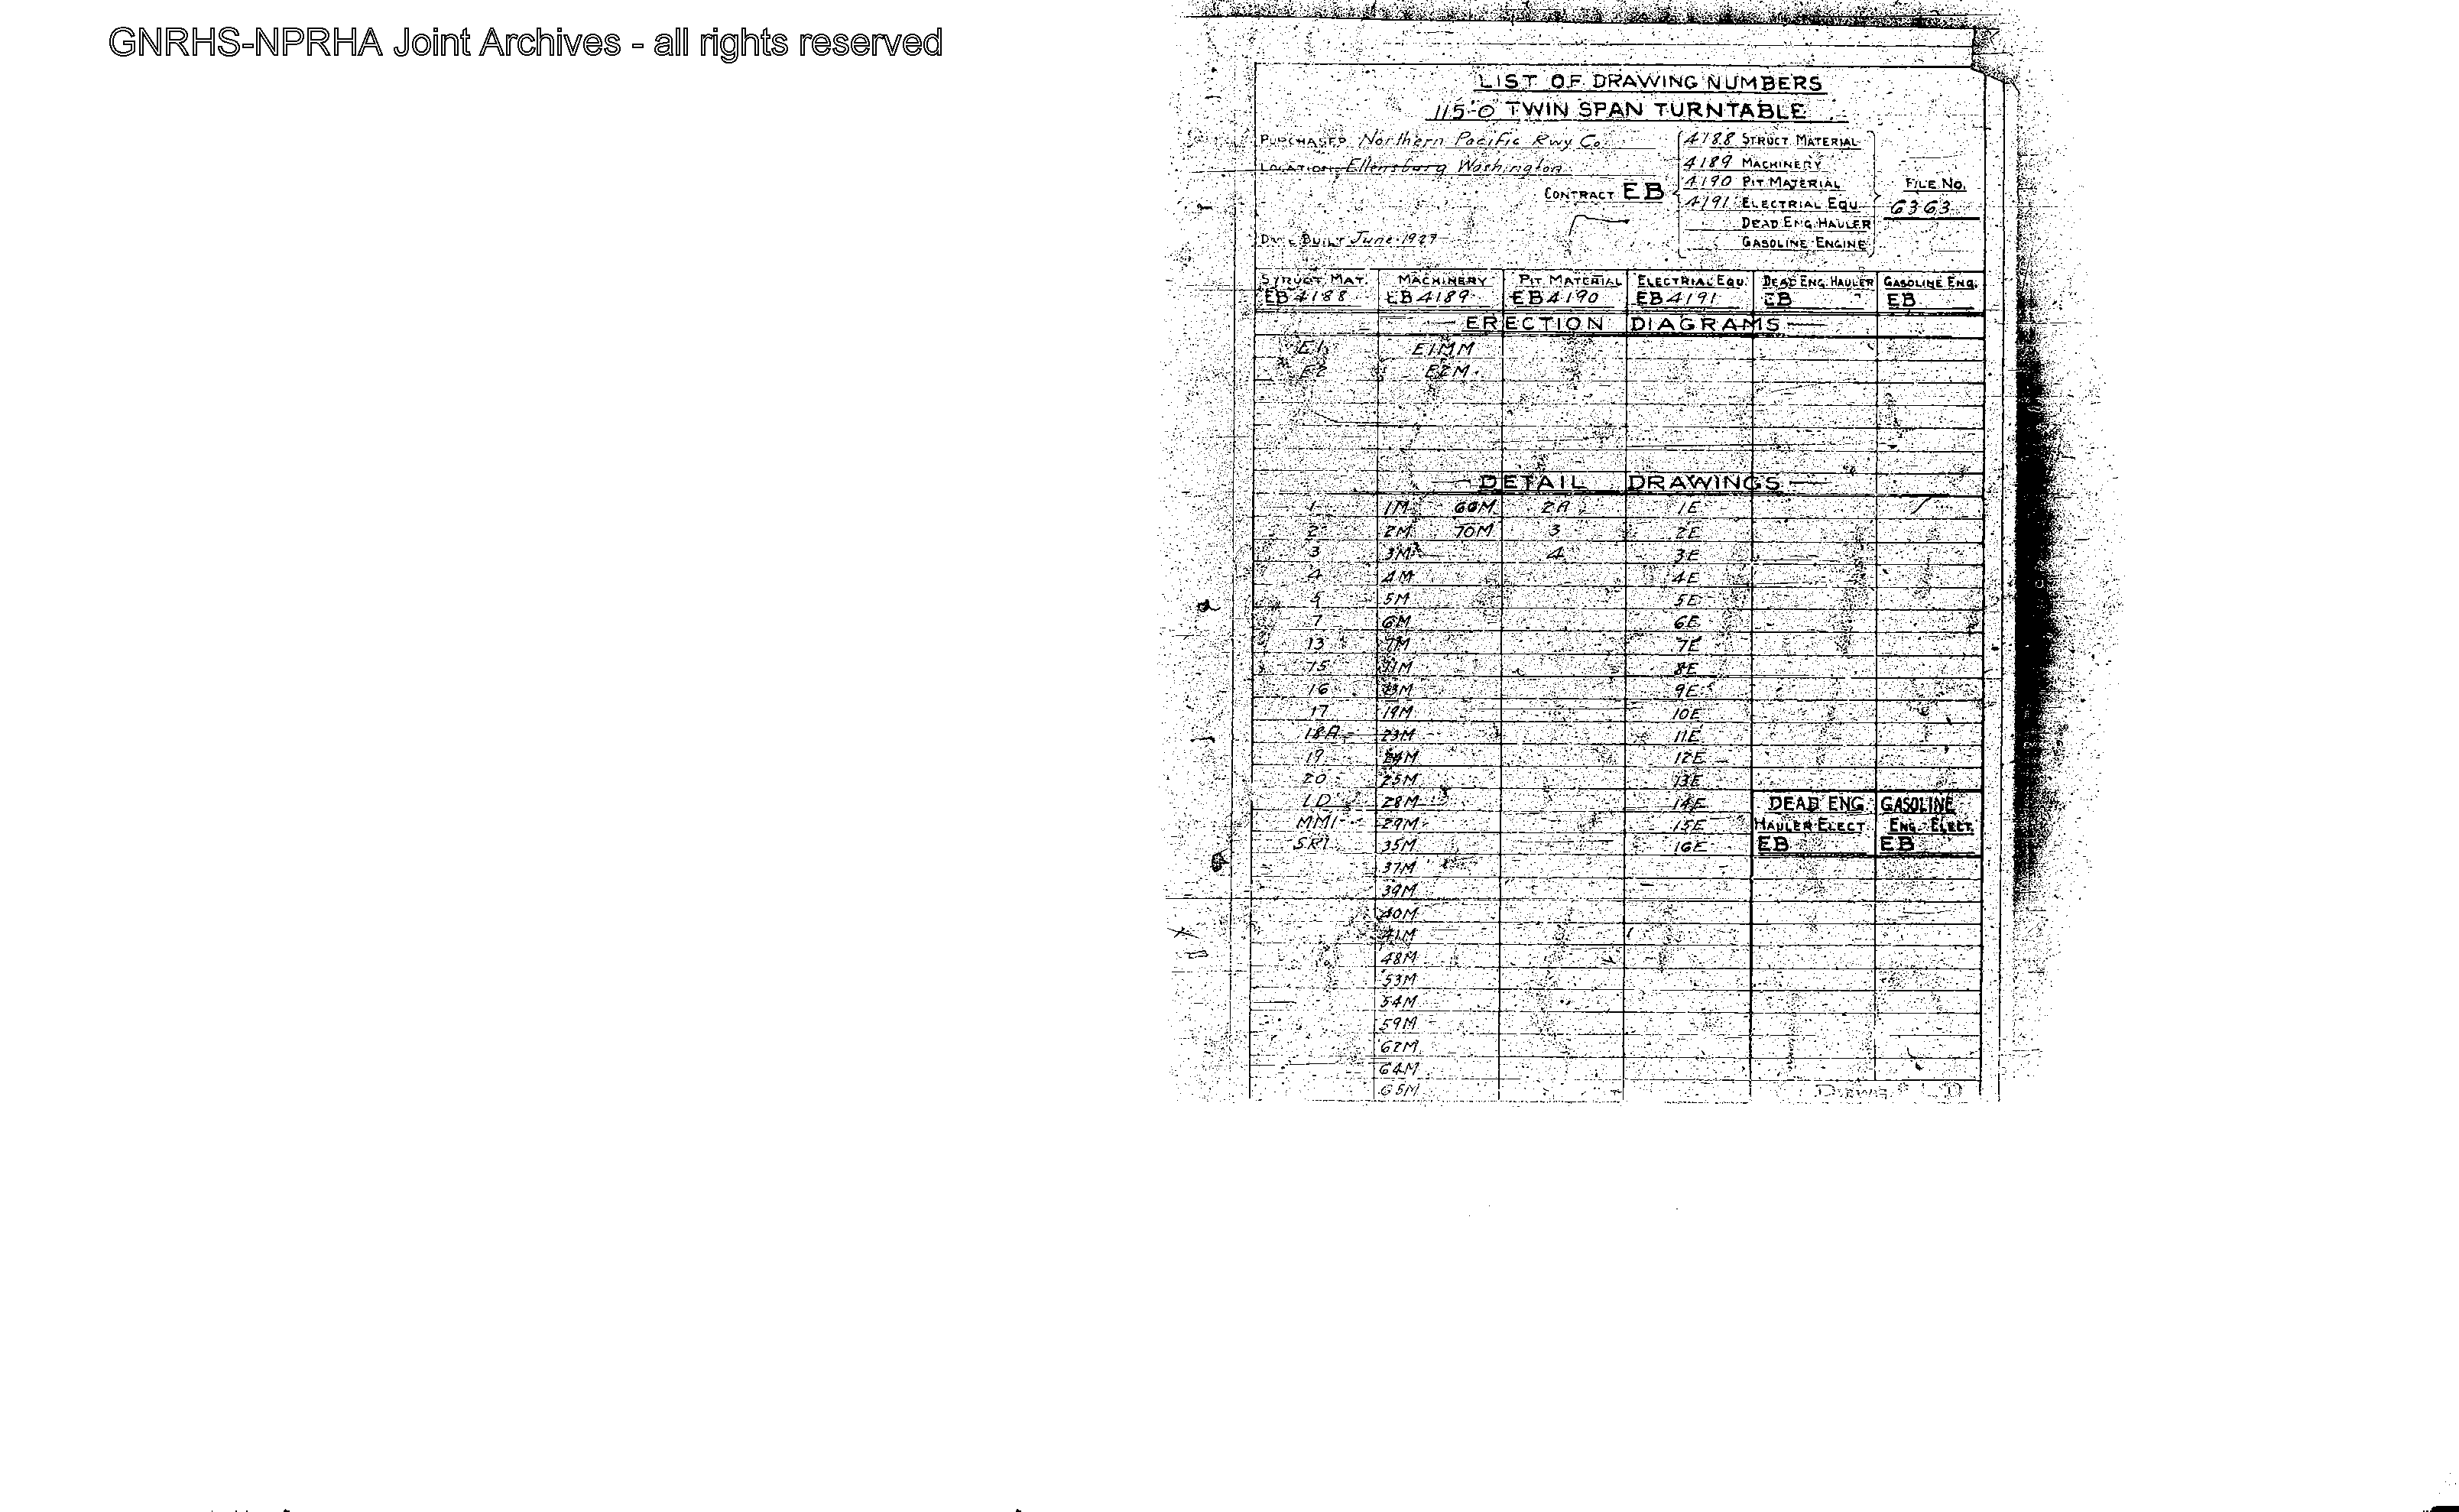 GNRHS-NPRHA Joint Archives - all rights reserved
LIST OF DRAWING NUMBERS
115'-0 TWIN SPAN TURNTABLE
PURCHASER Northern Pacific Rwy Co.
LOCATION Ellensburg Washington
CONTRACT EB
4188 STRUCT MATERIAL
4189 MACHINERY
4190 PIT MATERIAL
4191 ELECTRIAL EQU.
DEAD ENG. HAULER
GASOLINE ENGINE
FILE NO.
6363
DATE BUILT June 1927
STRUCT MAT. MACHINERY PIT MATERIAL ELECTRIAL EQU. DEAD ENG. HAULER GASOLINE ENG.
EB 4188 EB 4189 EB 4190 EB 4191 EB EB
ERECTION DIAGRAMS
E1 E1MM
E2 E2M
DETAIL DRAWINGS
1 1M 66M 2A 1E
2 2M 70M 3 2E
3 3M 4 3E
4 4M 4E
5 5M 5E
7 6M 6E
13 7M 7E
15 11M 8E
16 13M 9E
17 19M 10E
18A 23M 11E
19 24M 12E
20 25M 13E
LD 28M 14E DEAD ENG. GASOLINE
MM1 29M 15E HAULER ELECT. ENG. ELECT.
SR1 35M 16E EB EB
37M
39M
40M
41M
48M
53M
54M
59M
62M
64M
65M